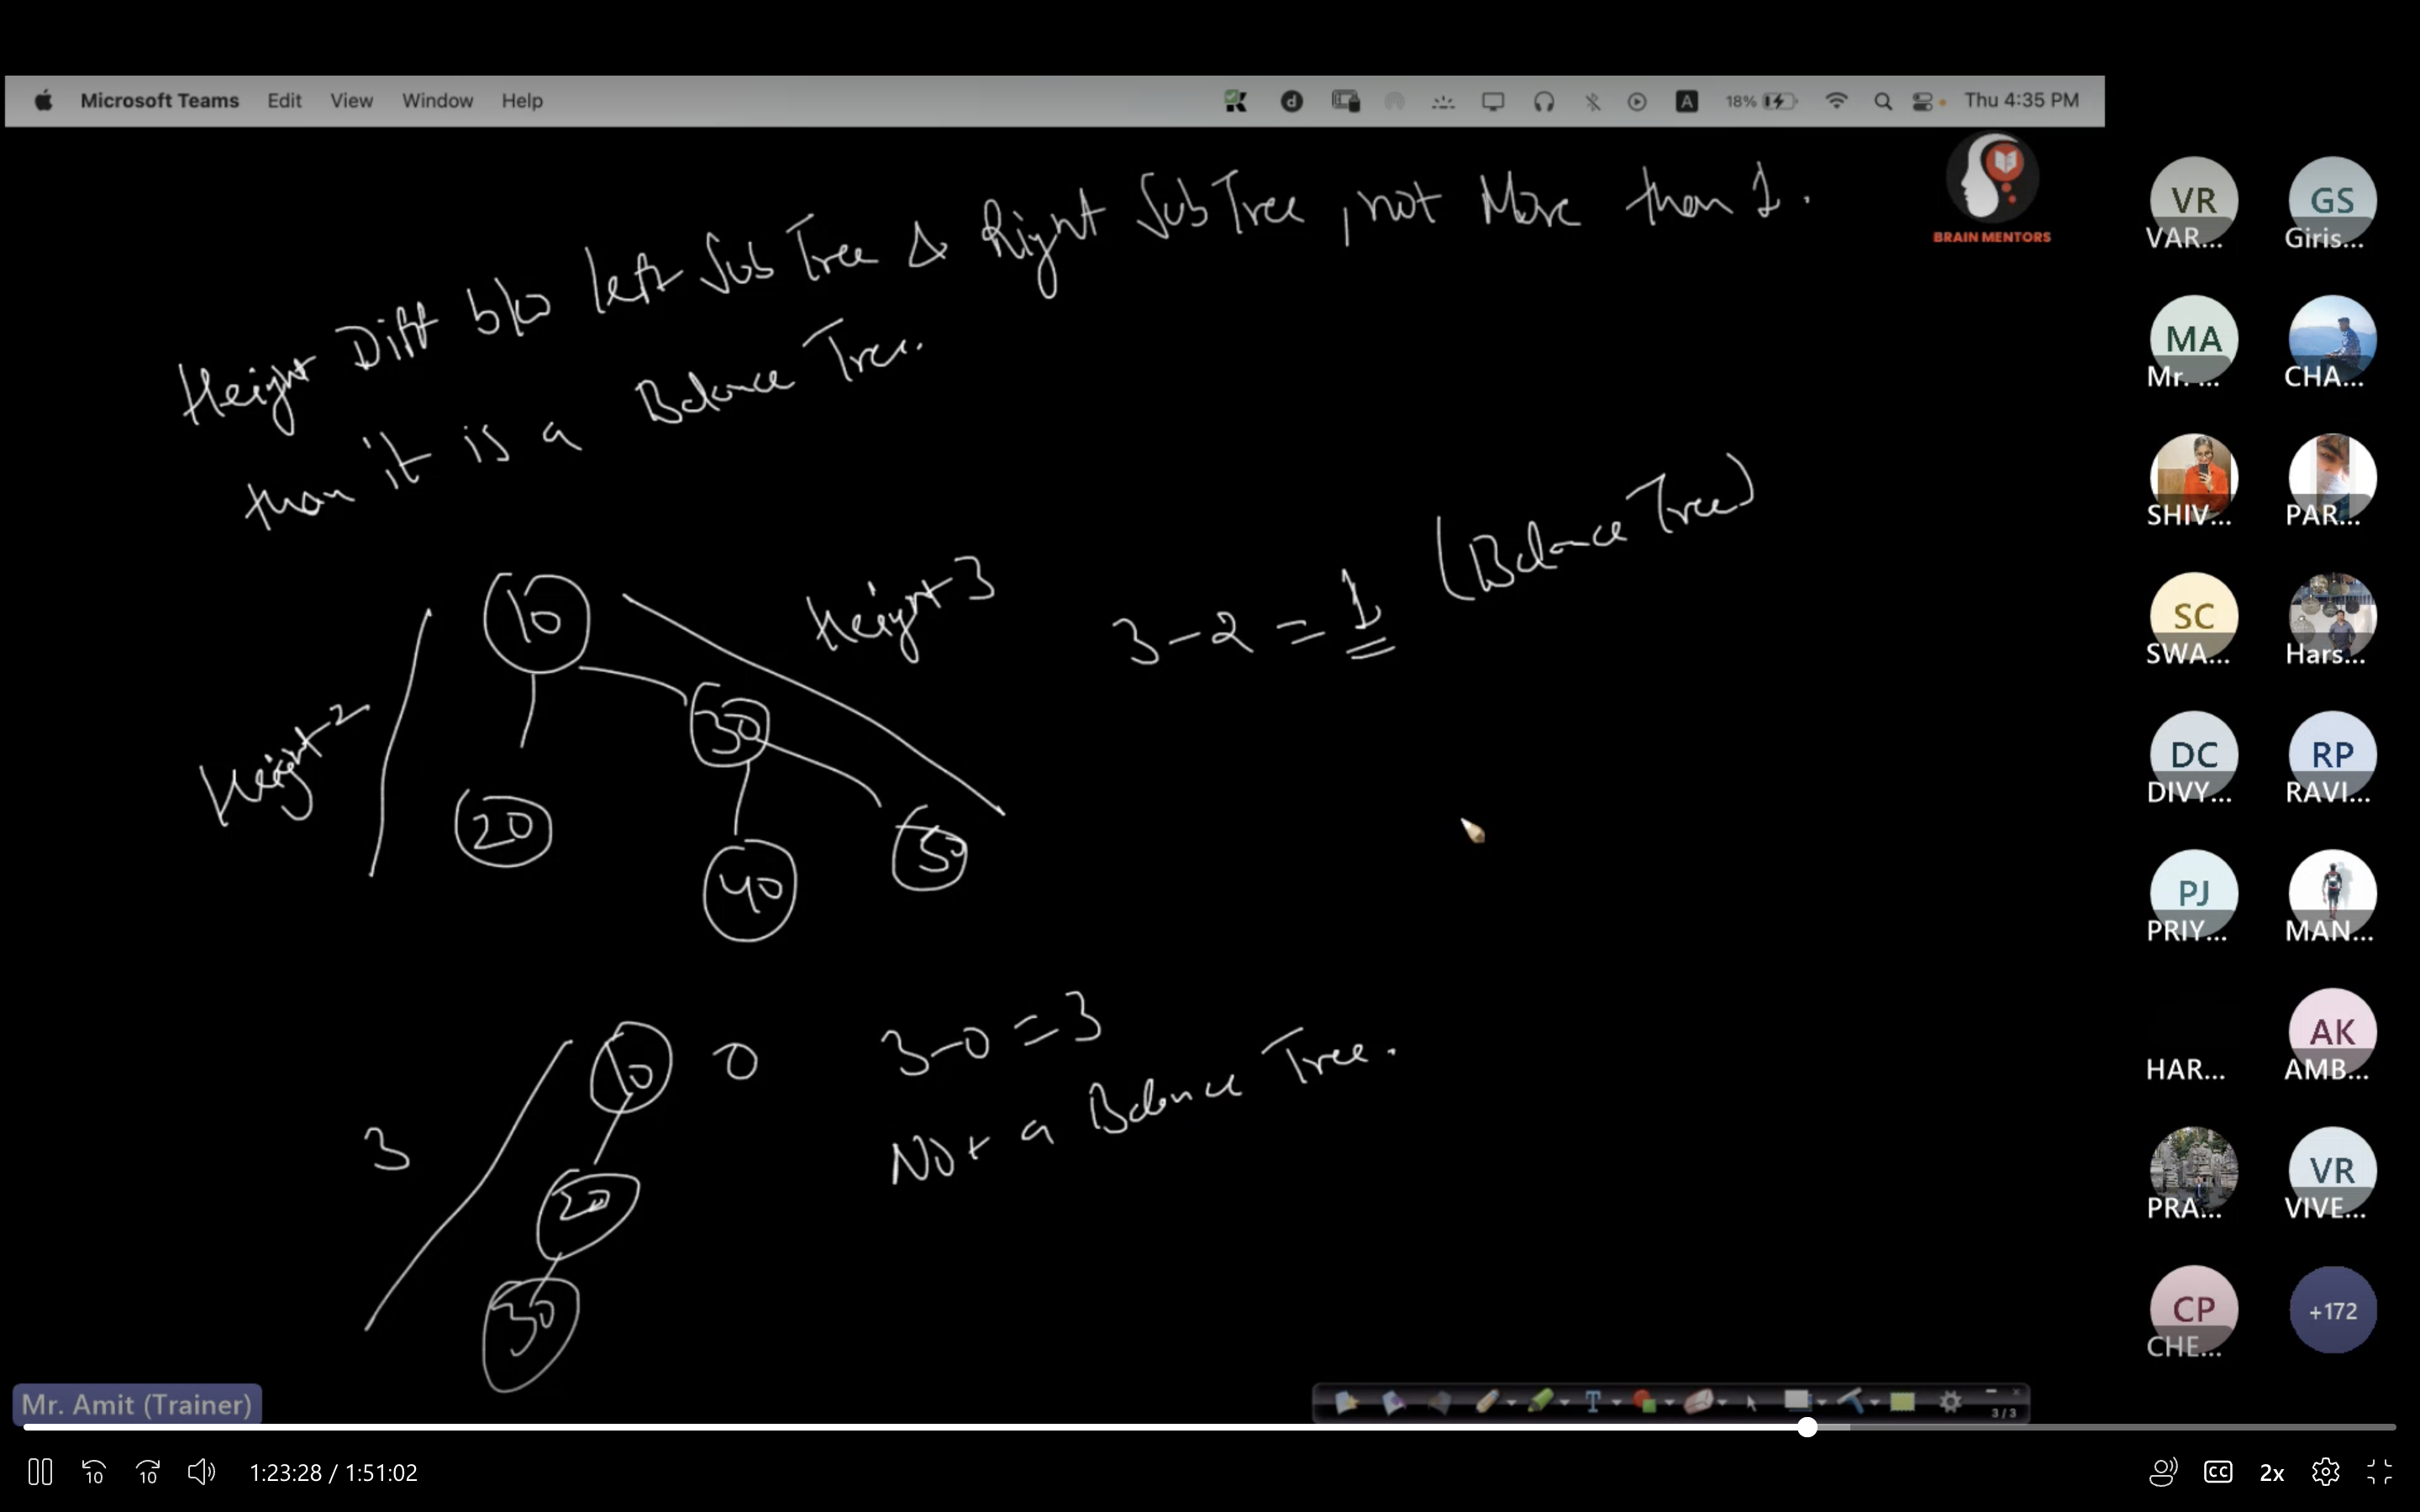 Microsoft Teams Edit View Window Help
18% Thu 4:35 PM
BRAIN MENTORS
Height Diff b/w left Sub Tree & Right Sub Tree, not More than 1.
than it is a Balance Tree.
10
Height 3
3-2 = 1 (Balance Tree)
Height 2
30
20
40
50
10 0
3-0=3
3
Not a Balance Tree.
20
30
VR
VAR...
GS
Giris...
MA
Mr. ...
CHA...
SHIV...
PAR...
SC
SWA...
Hars...
DC
DIVY...
RP
RAVI...
PJ
PRIY...
MAN...
HAR...
AK
AMB...
PRA...
VR
VIVE...
CP
CHE...
+172
Mr. Amit (Trainer)
3/3
10 10 1:23:28 / 1:51:02
CC 2x